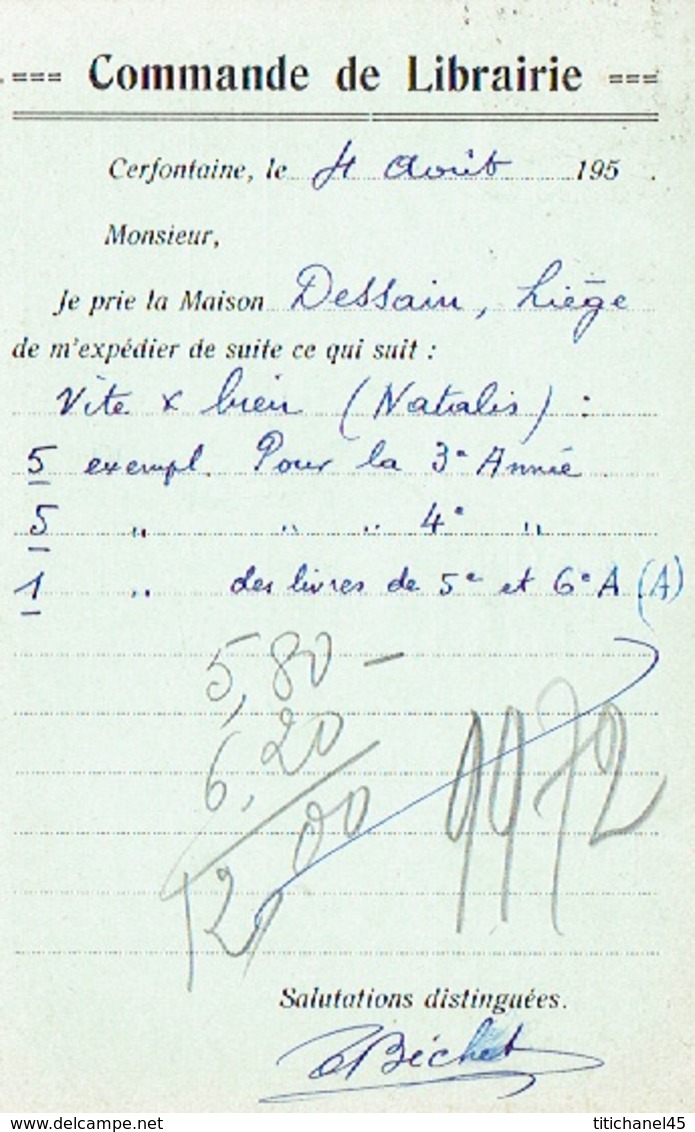 === Commande de Librairie ===
Cerfontaine, le 4 Août 195 .
Monsieur,
Je prie la Maison Dessain, Liège
de m'expédier de suite ce qui suit :
Vite & bien (Natalis) :
5 exempl. Pour la 3e Année
5 " " " 4e "
1 " des livres de 5e et 6e A (A)
5,80 –
6,20
12,00
Salutations distinguées.
Béchet
titichanel45